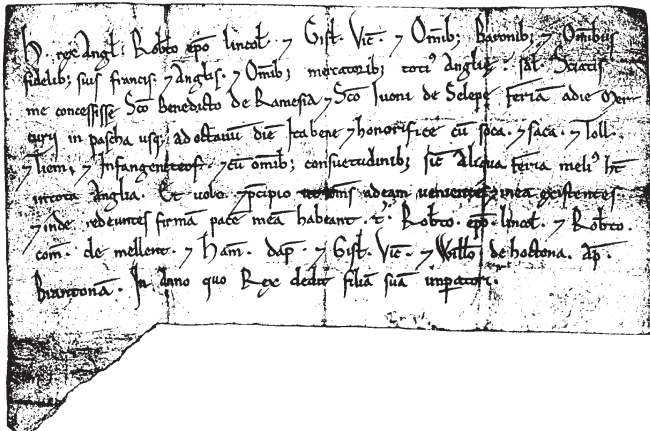 H. rex Angl; Rob̄to ep̄o lincol̄. ⁊ Gisl̄. Vic̄. ⁊ Om̄ib; Baronib; ⁊ Omībus
fidelib; suis francis. ⁊ Anglis. ⁊ Om̄ib; mercatorib; toti' Anglie. sal̄. Sciatis
me concessisse Sc̄o Benedicto de Ramesia ⁊ Sc̄o Iuoni de Selepe feriā adie Mer
curii in pascha usq; ad octauū diē Ita bene ⁊ honorifice cū soca. ⁊ saca. ⁊ Toll.
⁊ Tiem ⁊ Infangenteof. ⁊ cū om̄ib; consuetudinib; sic̄ Aliqua feria meli' h̄t
in tota Anglia. Et uolo ⁊ p̄cipio ut om̄s ad eam uenientes ⁊ in ea existentes
⁊ inde redeuntes firmā pacē meā habeant. T'. Rob̄to. ep̄o. lincol̄. ⁊ Rob̄to.
com̄. de mellent. ⁊ Ham̄. dap̄. ⁊ Gisl̄. Vic̄. ⁊ Will̄o de hoctona. Ap̄.
Biantonā. In anno quo Rex dedit filiā suā inperatori.